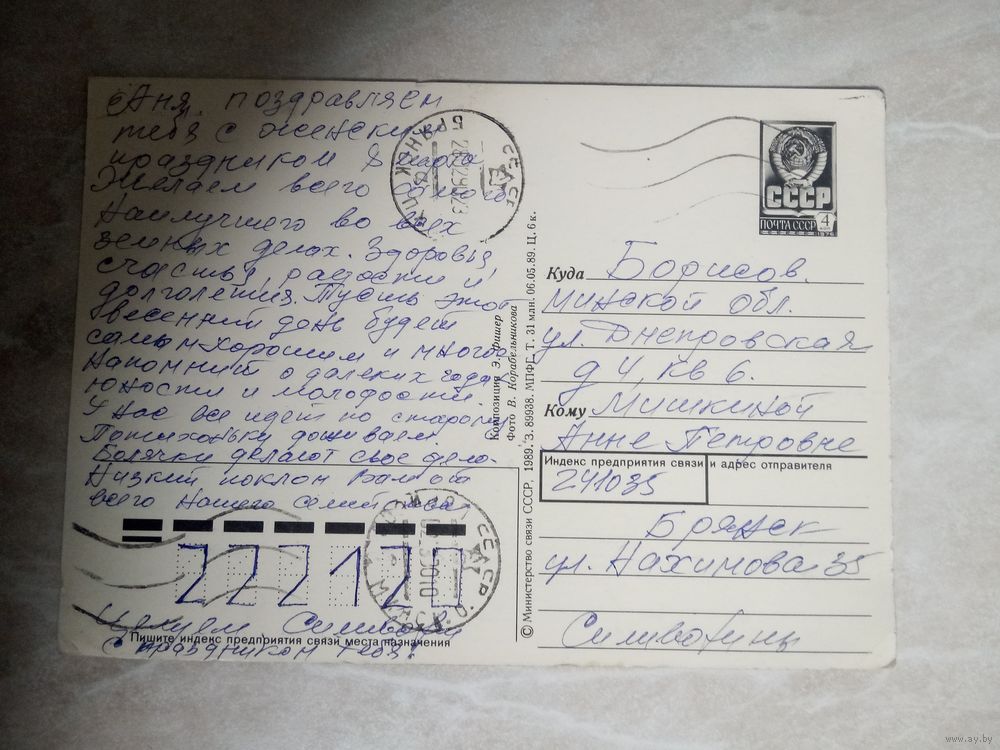 Аня, поздравляем
тебя с женским
праздником 8 марта
Желаем всего самого
наилучшего во всех
земных делах. Здоровья,
счастья, радости и
долголетия. Пусть этот
весенний день будет
самым хорошим и много
напомнит о далеких годах
юности и молодости.
У нас все идет по старому.
Потихоньку доживаем.
Болячки делают свое дело.
Низкий поклон Вам от
всего нашего семейства
222120
Целуем
Пишите индекс предприятия связи места назначения
с праздником тебя!
БРЯНСК
СССР
Композиция Э. Фишер
Фото В. Корабельникова
© Министерство связи СССР, 1989. З. 89938. МПФГ. Т. 31 млн. 06.05.89. Ц. 6 к.
СССР
ПОЧТА СССР
4
Куда Борисов
Минской обл.
ул. Днепровская
д 4, кв 6.
Кому Мишкиной
Анне Петровне
Индекс предприятия связи и адрес отправителя
241035
Брянск
ул. Нахимова 35
www.ay.by